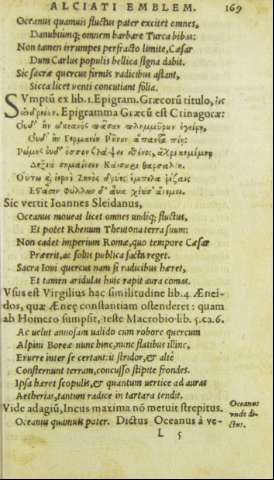 ALCIATI EMBLEM. 169
Oceanus quamuis fluctus pater excitet omnes,
Danubiumq; omnem barbare Turca bibas:
Non tamen irrumpes perfracto limite, Cæsar
Dum Carlus populis bellica signa dabit.
Sic sacræ quercus firmis radicibus astant,
Sicca licet venti concutiant folia.
Sumptũ ex lib. 1. Epigram. Græcorũ titulo, εἰς
Epigramma Græcũ est Crinagoræ:
Οὐδ' ἢν ὠκεανὸς πᾶσαν πλημμυραν ἐγείρῃ,
Οὐδ' ἢν Γερμανίη Ῥῆνον ἅπαντα πίῃ:
Ῥώμης οὐδ' ὅσσον βλάψει σθένος, ἄχρι κε μίμνῃ
Δεξιὰ σημαίνειν Καίσαρι θαρσαλέη.
Οὕτω καὶ ἱεραὶ Ζηνὸς δρύες ἔμπεδα ῥίζαις
Ἑστᾶσιν φύλλων δ' αὖα χέουσ' ἄνεμοι.
Sic vertit Ioannes Sleidanus,
Oceanus moueat licet omnes undiq; fluctus,
Et potet Rhenum Theutona terra suum:
Non cadet imperium Romæ, quo tempore Cæsar
Præerit, ac solus publica facta reget.
Sacra Ioui quercus nam si radicibus hæret,
Et tamen aridulas huic rapit aura comas.
Vsus est Virgilius hac similitudine lib. 4. Ænei-
dos, qua Æneę constantiam ostenderet: quam
ab Homero sumpsit, teste Macrobio lib. 5. ca. 6.
Ac uelut annosam ualido cum robore quercum
Alpini Boreæ nunc hinc, nunc flatibus illinc,
Eruere inter se certant: it stridor, & altè
Consternunt terram, concusso stipite frondes.
Ipsa hæret scopulis, & quantum uertice ad auras
Aetherias, tantum radice in tartara tendit.
Vide adagiũ, Incus maxima nõ metuit strepitus.
Oceanus quamuis pater. Dictus Oceanus à ve-
Oceanus
vnde di-
ctus.
L 5